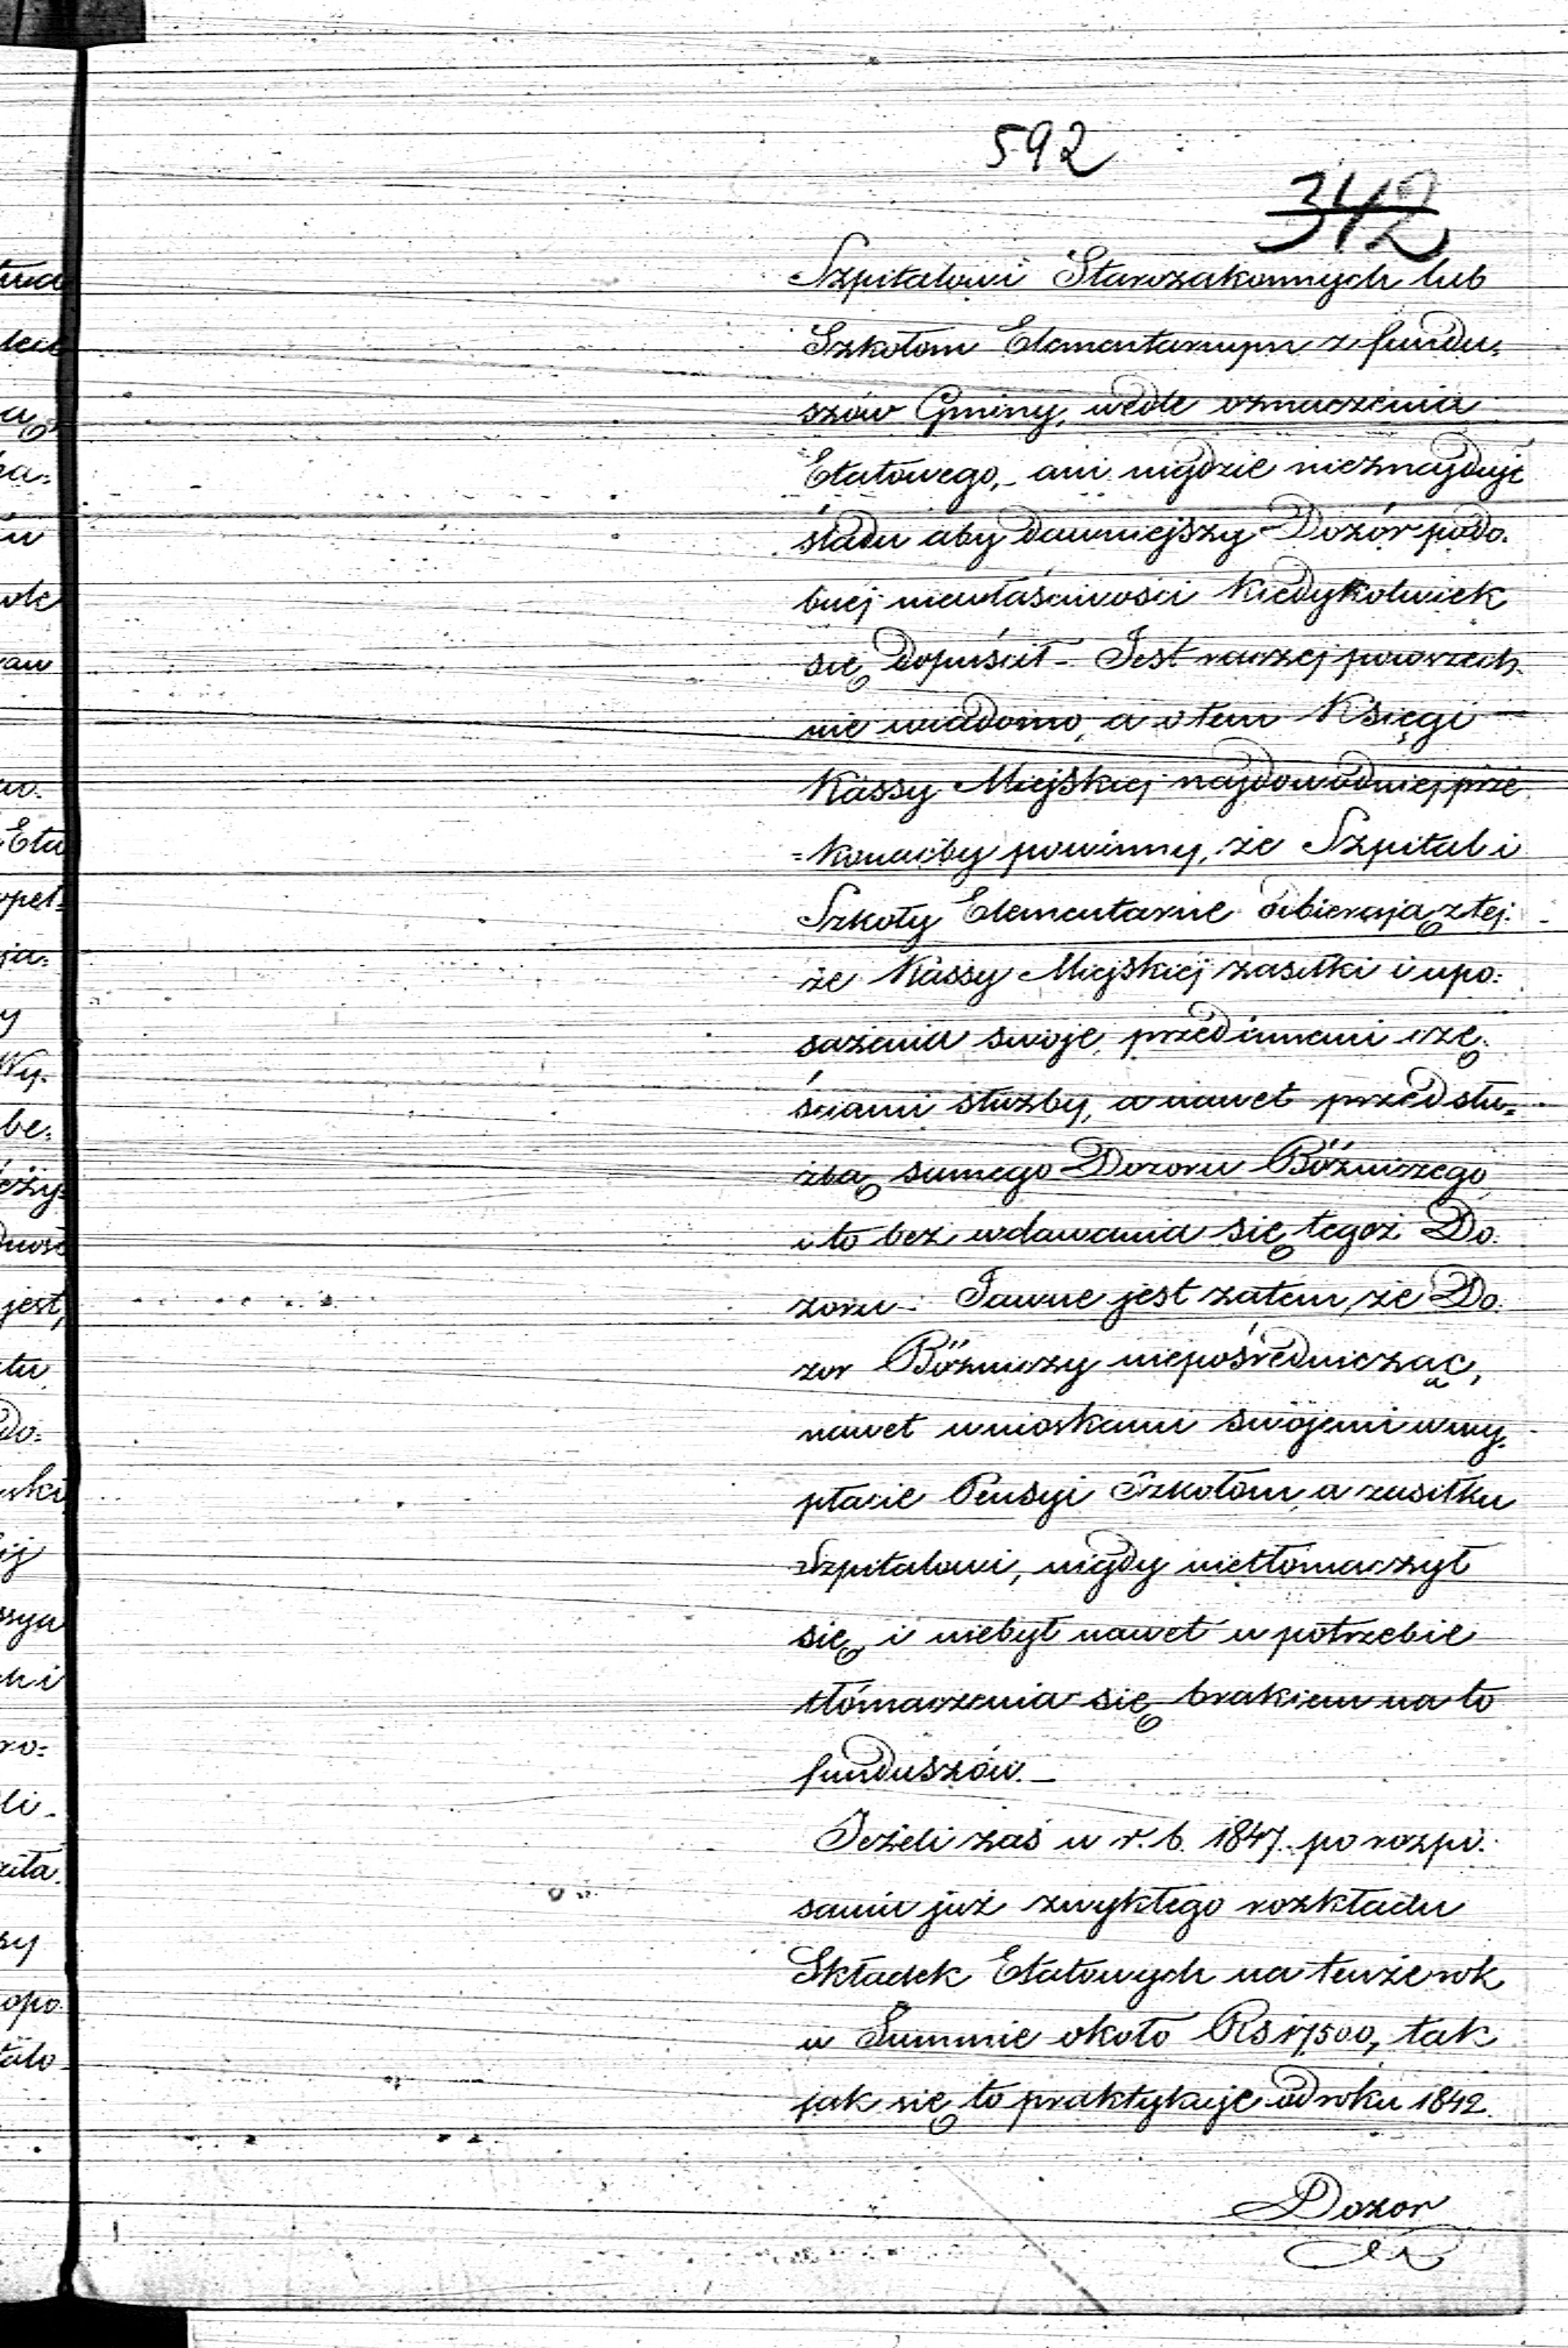 592
342
Szpitalowi Starozakonnych lub
Szkołom Elementarnym z fundu:
szów Gminy, wedle oznaczenia
Etatowego, - ani nigdzie nieznajduje
śladu aby dawniejszy Dozór podo:
bnej niewłaściwości kiedykolwiek
się dopuścił - Jest raczej powszech:
nie wiadomo, a o tem Księgi
Kassy Miejskiej najdowodniej prze
=konaćby powinny, że Szpital i
Szkoły Elementarne odbierają z tej:
że Kassy Miejskiej zasiłki i upo:
sażenia swoje, przed innemi czę:
ściami służby, a nawet przed słu=
żbą samego Dozoru Bóźniczego
i to bez wdawania się tegoż Do:
zoru - Jawne jest zatem, że Do:
zor Bóźniczy niepośrednicząc,
nawet wnioskami swojemi w wy:
płacie Pensyi Szkołom, a zasiłku
Szpitalowi, nigdy nietłómaczył
się i niebył nawet w potrzebie
tłómaczenia się brakiem na to
funduszów. -
Jeżeli zaś w r. b. 1847. po rozpi:
saniu już zwykłego rozkładu
Składek Etatowych na tenże rok
w Summie około Rs 17500, tak
jak się to praktykuje od roku 1842.
Dozor
tua
ka:
Etu
opeł:
ja:
y
Wy:
be:
jest,
Do:
ro:
li -
opo